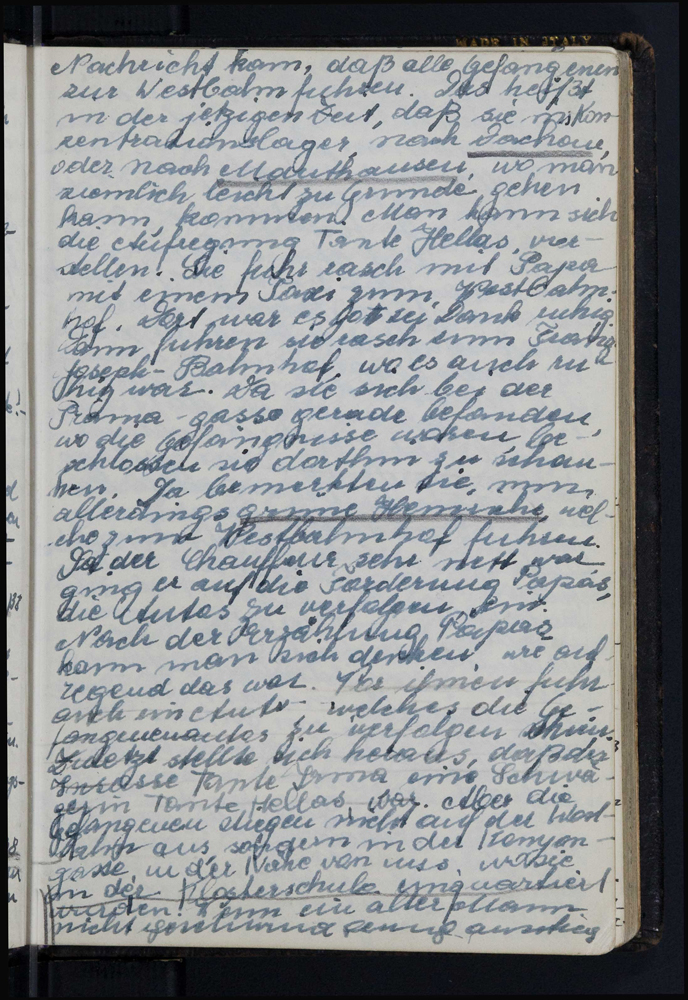 MADE IN ITALY
Nachricht kam, daß alle Gefangenen
zur Westbahn fuhren. Das heißt
in der jetzigen Zeit, daß sie ins Kon-
zentrationslager, nach Dachau,
oder nach Mauthausen, wo man
ziemlich leicht zu Grunde gehen
kann kommen. Man kann sich
die Aufregung Tante Hellas, vor-
stellen. Sie fuhr rasch mit Papa
mit einem Taxi zum Westbahn-
hof. Dort war es Gott sei Dank ruhig
Dann fuhren sie rasch zum Franz
Joseph-Bahnhof, wo es auch ru-
hig war. Da sie sich bei der
Prama-gasse gerade befanden,
wo die Gefängnisse waren be-
schlossen sie dorthin zu schau-
en. Da bemerkten sie, nun
allerdings grüne Heinriche wel-
che zum Westbahnhof fuhren.
Da der Chauffeur sehr nett war
ging er auf die Forderung Papas,
die Autos zu verfolgen, ein.
Nach der Erzählung Papas
kann man sich denken wie auf-
regend das war. Vor ihnen fuhr
auch ein Auto welches die Ge-
fangenenautos zu verfolgen schien.
Zuletzt stellte sich heraus, daß die
Insasse Tante Irma eine Schwä-
gerin Tante Hellas war. Aber die
Gefangenen stiegen nicht auf der West-
bahn aus sondern in der Kenyon-
gasse, in der Nähe von uns wo sie
in der Klosterschule einquartiert
wurden. Wenn ein alter Mann
nicht geschwind genug ausstieg